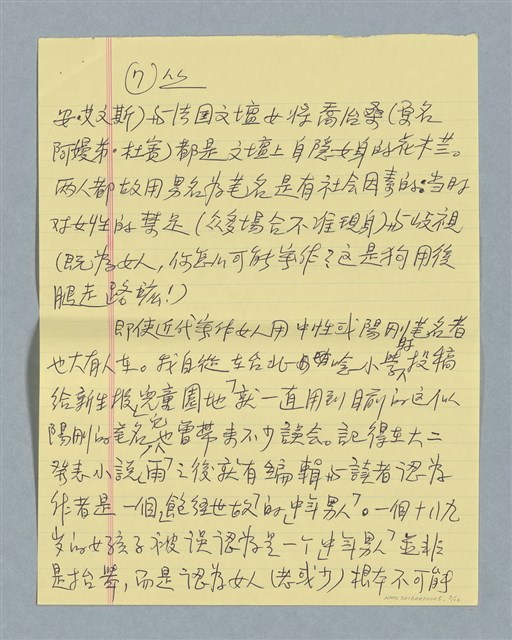 (7) 丛
安·艾文斯)与法国文壇女将喬治桑(原名
阿嫚第·杜賽)都是文壇上自隱女身的花木兰。
两人都故用男名为笔名是有社会因素的:当时
对女性的禁足(众多場合不准現身)与歧視
(既为女人,你怎么可能寫作?这是狗用後
腿走路哉!)
即使近代寫作女人用中性或陽剛笔名者
也大有人在。我自從在台北唸小學時投稿
給新生报「兒童園地」就一直用到目前的这似
陽剛的笔名,它也曾带来不少誤会。記得在大二
発表小說「雨」之後就有编輯与讀者认为
作者是一個「飽經世故」的「中年男人」。一個十八九
岁的女孩子被误認为是一个「中年男人」並非
是抬舉,而是認为女人(老或少)根本不可能